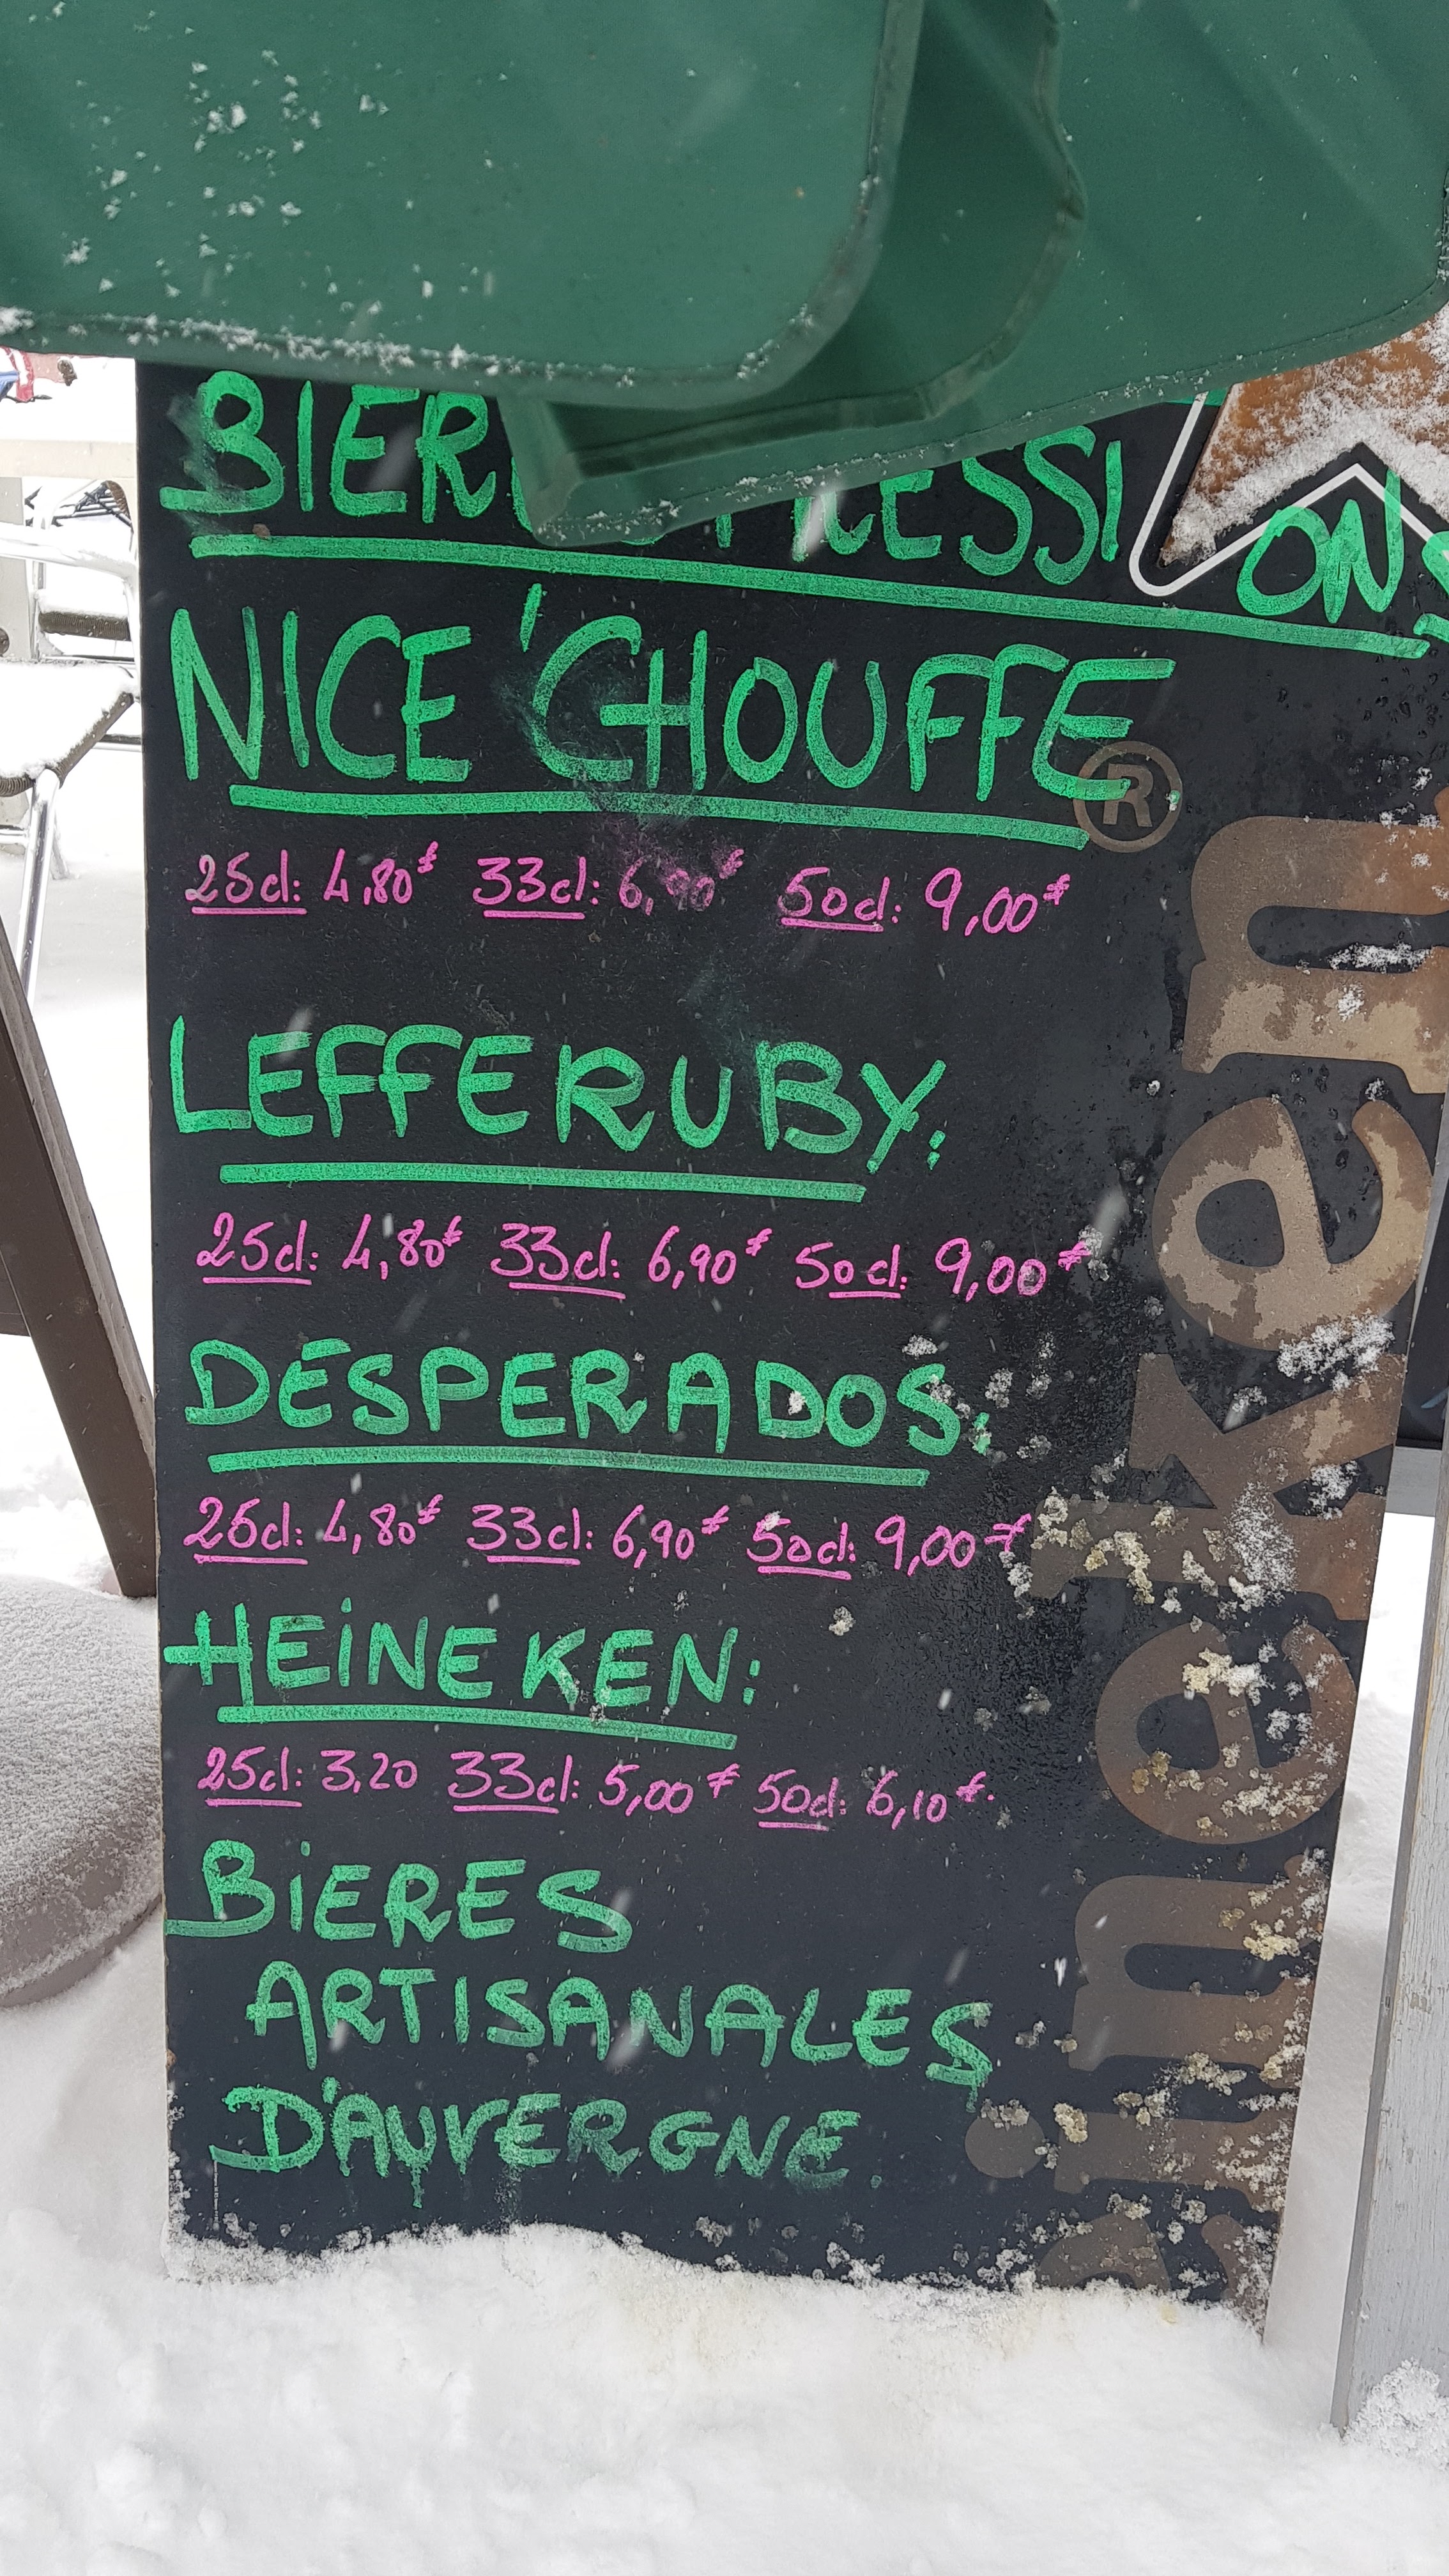 BIER PRESSIONS
NICE 'CHOUFFE
25cl: 4,80€ 33cl: 6,90€ 50cl: 9,00€
LEFFE RUBY:
25cl: 4,80€ 33cl: 6,90€ 50cl: 9,00€
DESPERADOS:
25cl: 4,80€ 33cl: 6,90€ 50cl: 9,00€
HEINEKEN:
25cl: 3,20 33cl: 5,00€ 50cl: 6,10€.
BIERES
ARTISANALES
D'AUVERGNE.
eineken®